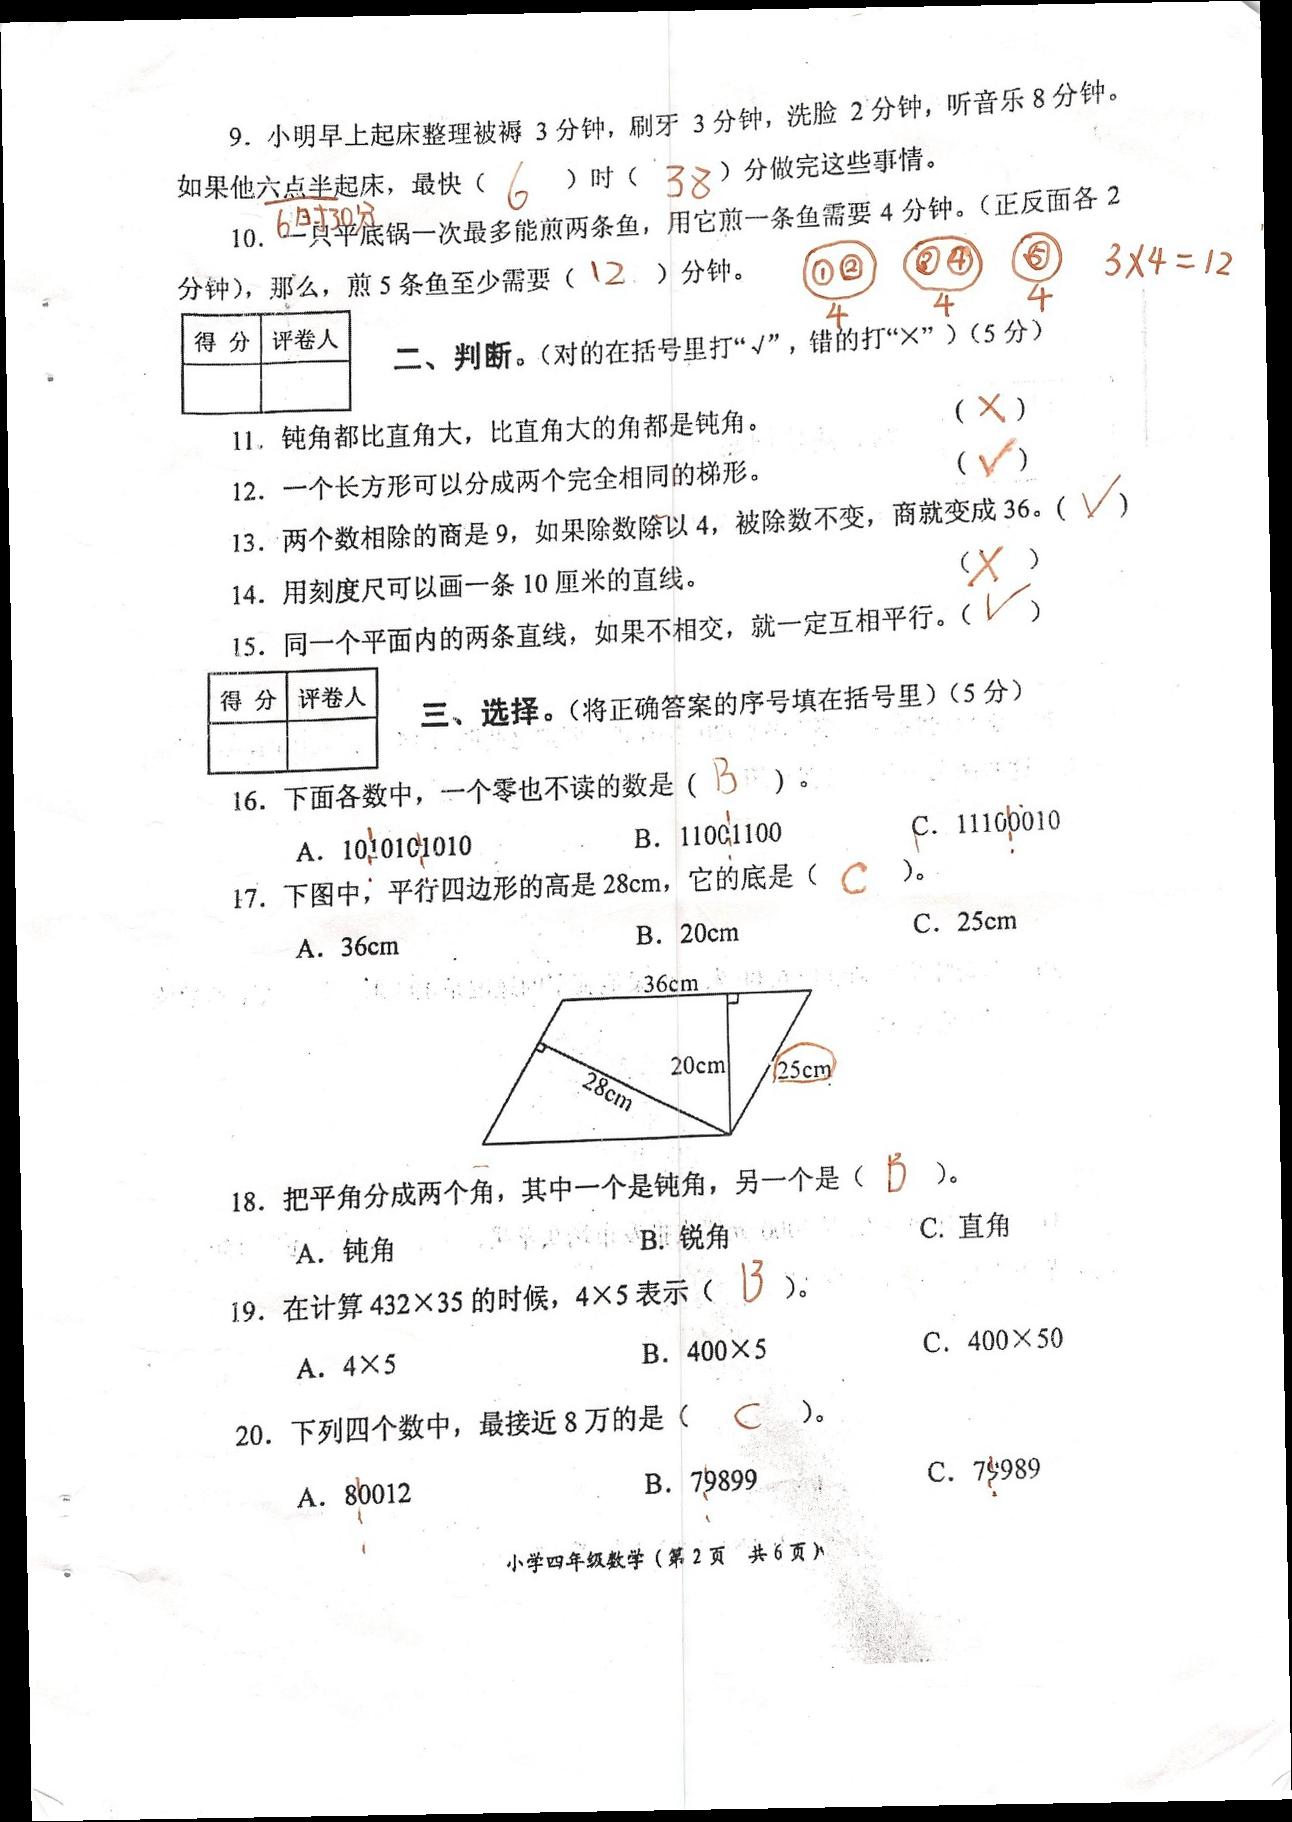 9. 小明早上起床整理被褥 3 分钟，刷牙 3 分钟，洗脸 2 分钟，听音乐 8 分钟。
如果他六点半起床，最快（ 6 ）时（ 38 ）分做完这些事情。
6时30分
10. 一只平底锅一次最多能煎两条鱼，用它煎一条鱼需要 4 分钟。（正反面各 2
分钟），那么，煎 5 条鱼至少需要（ 12 ）分钟。
①② ③④ ⑤ 3×4=12
4 4 4
得 分 评卷人
二、判断。（对的在括号里打“√”，错的打“×”）（5 分）
11. 钝角都比直角大，比直角大的角都是钝角。 （ × ）
12. 一个长方形可以分成两个完全相同的梯形。 （ √ ）
13. 两个数相除的商是 9，如果除数除以 4，被除数不变，商就变成 36。（ √ ）
14. 用刻度尺可以画一条 10 厘米的直线。 （ × ）
15. 同一个平面内的两条直线，如果不相交，就一定互相平行。（ √ ）
得 分 评卷人
三、选择。（将正确答案的序号填在括号里）（5 分）
16. 下面各数中，一个零也不读的数是（ B ）。
A. 1010101010 B. 11001100 C. 11100010
17. 下图中，平行四边形的高是 28cm，它的底是（ C ）。
A. 36cm B. 20cm C. 25cm
36cm
20cm
25cm
28cm
18. 把平角分成两个角，其中一个是钝角，另一个是（ B ）。
A. 钝角 B. 锐角 C. 直角
19. 在计算 432×35 的时候，4×5 表示（ B ）。
A. 4×5 B. 400×5 C. 400×50
20. 下列四个数中，最接近 8 万的是（ C ）。
A. 80012 B. 79899 C. 79989
小学四年级数学（第 2 页 共 6 页）